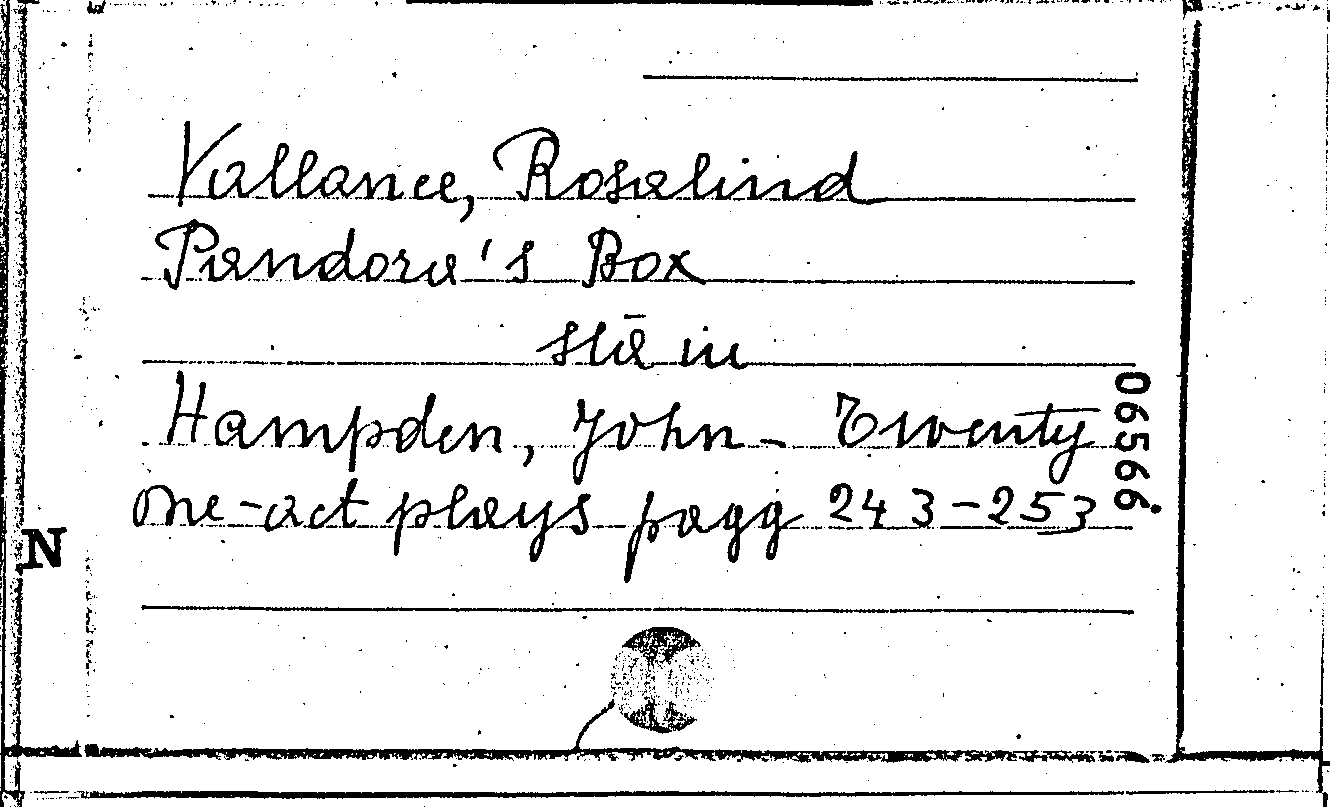 Vallance, Rosalind
Pandora's Box
stā in
Hampden, John - Twenty
one-act plays pagg 243-253
06566
N